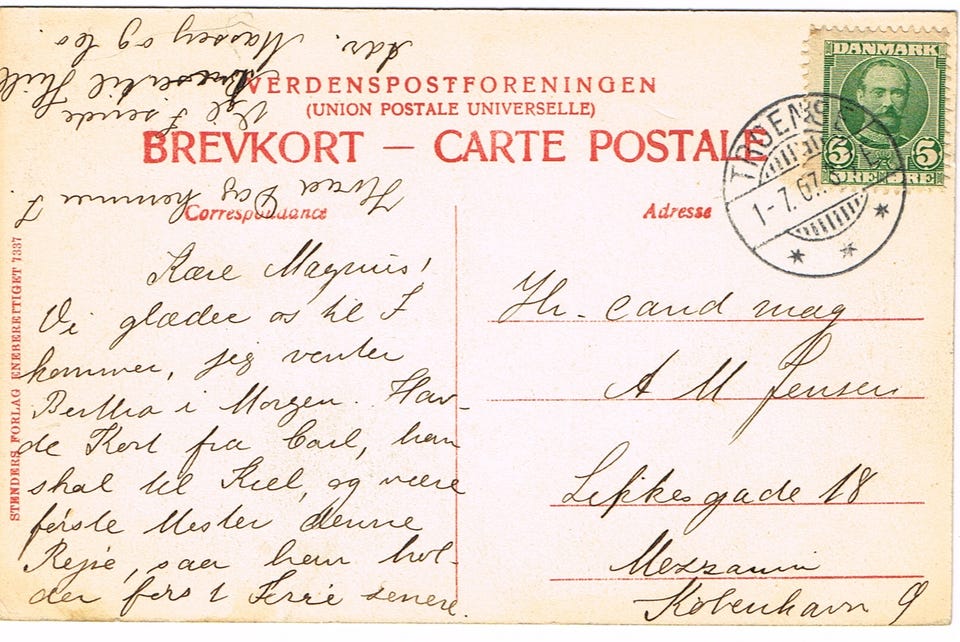 VERDENSPOSTFORENINGEN
(UNION POSTALE UNIVERSELLE)
BREVKORT — CARTE POSTALE
Correspondance
Adresse
DANMARK
5 5
ØRE ØRE
TROENSE
1-7.07.
STENDERS FORLAG ENEBERETTIGET 7337
Kære Magnus!
Vi glæder os til I
kommer, jeg venter
Bertha i Morgen. Hav-
de Kort fra Carl, han
skal til Kiel, og være
første Mester denne
Rejse, saa han hol-
der først Ferie senere.
Hvad Dag kommer I
Vil I sende
til
adr. og
Hr. cand mag
A M Jensen
Lykkesgade 18
Mezzanin
København